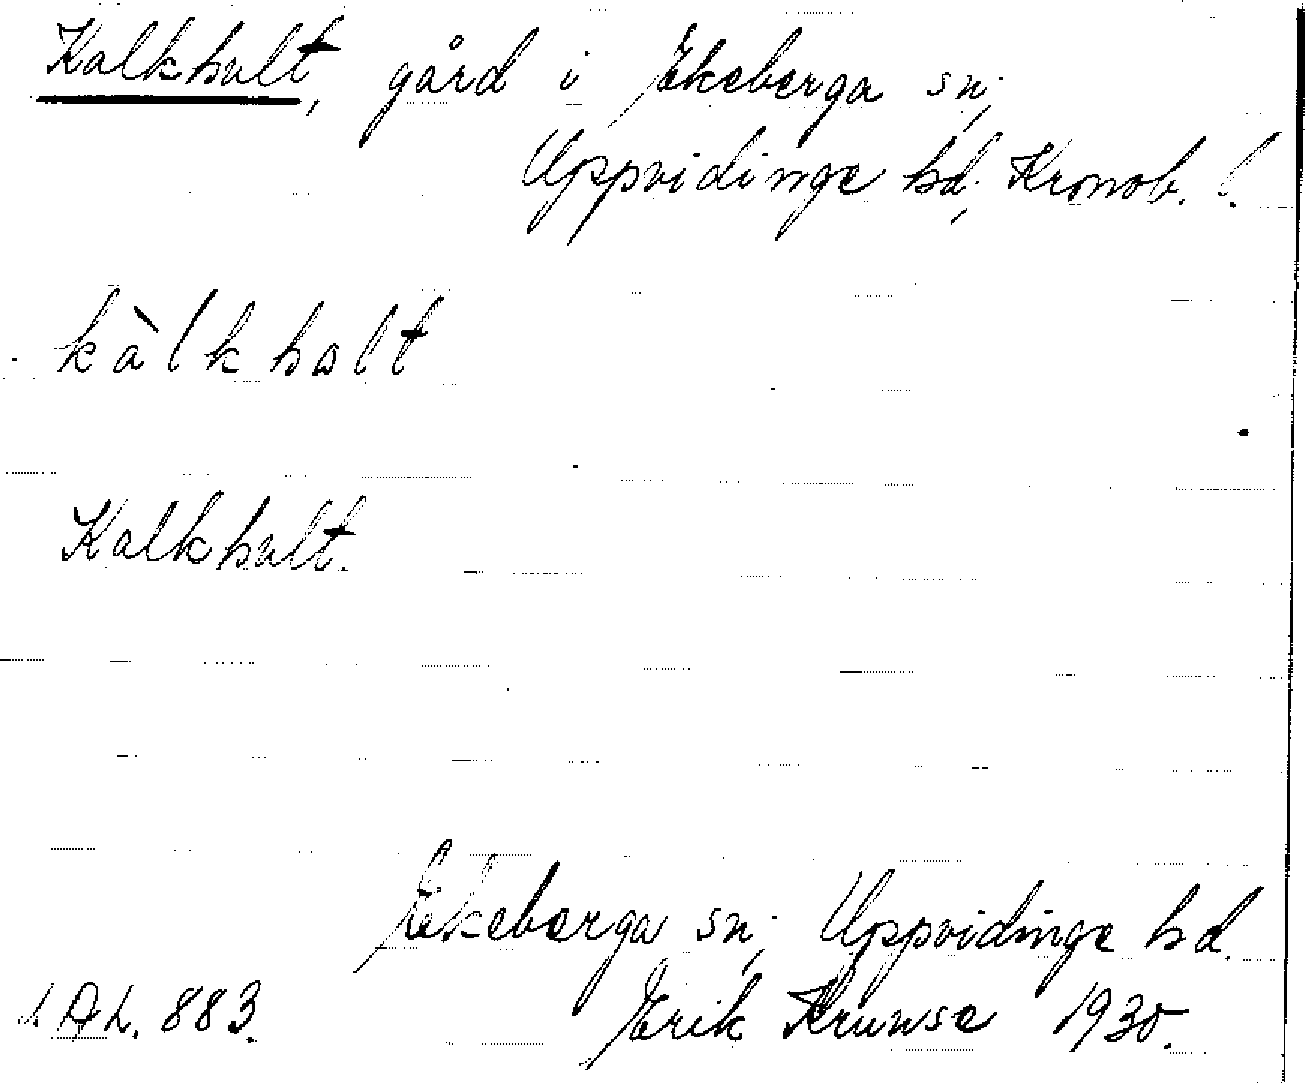 Kalkhult, gård i Ekeberga sn;
Uppvidinge hd; Kronob. l.
kàlkhalt
Kalkhult.
Ekeberga sn; Uppvidinge hd.
Erik Kruuse 1930.
883.